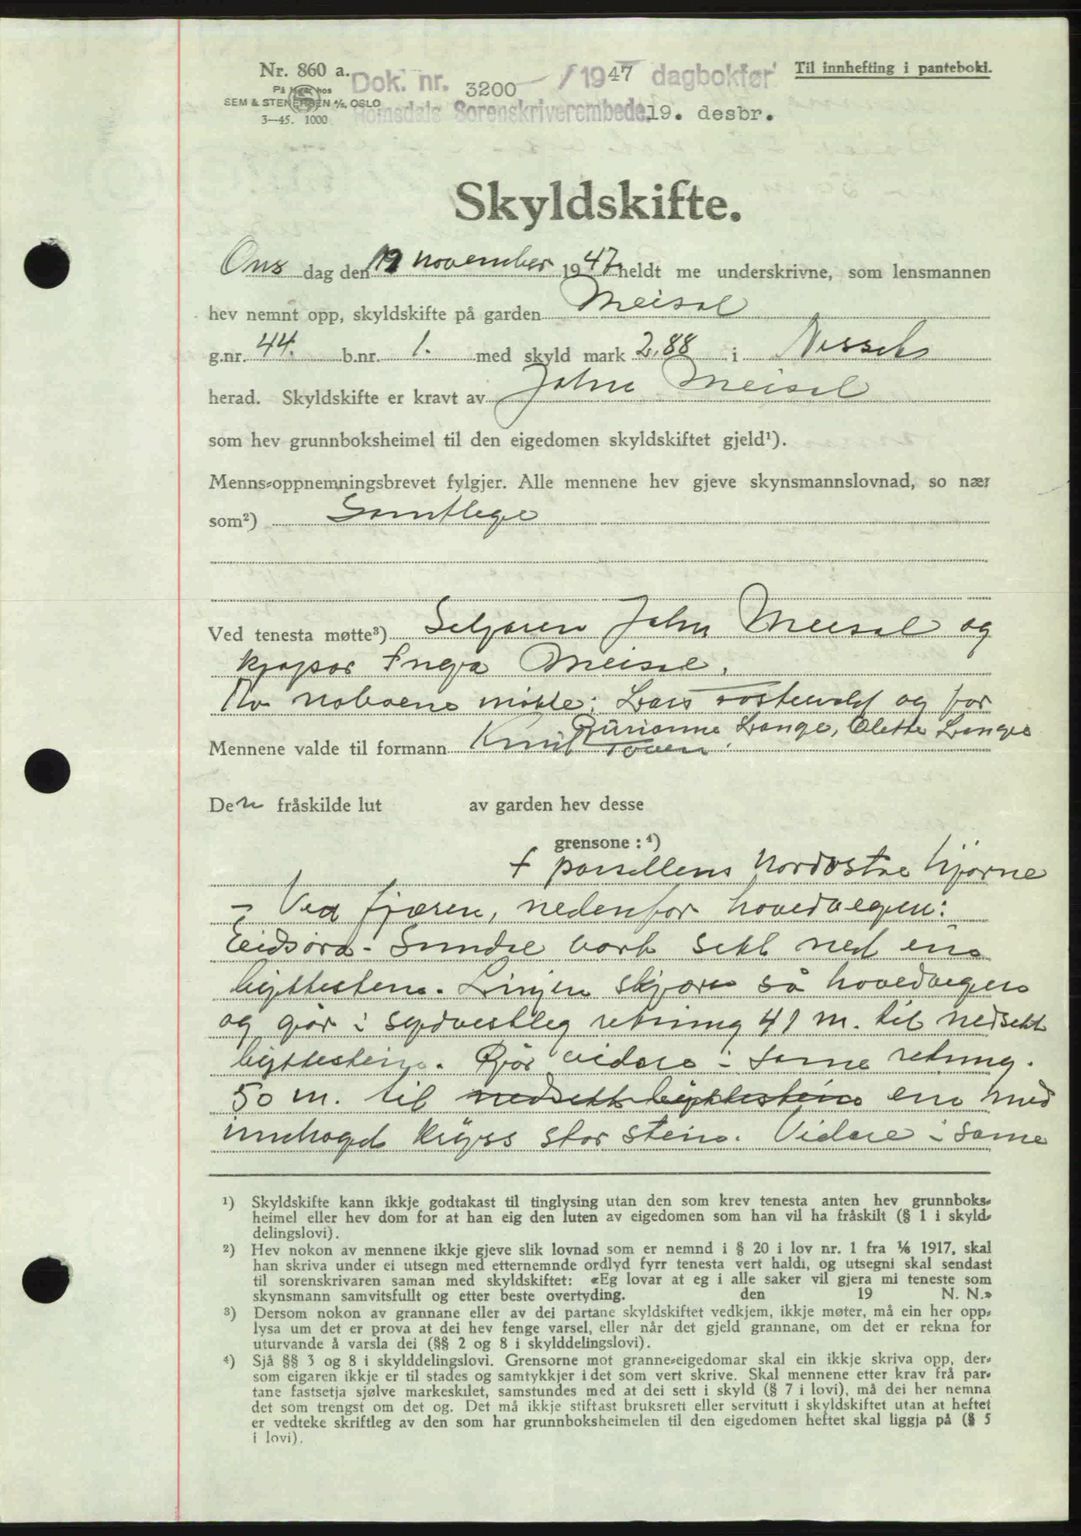 Nr. 860 a.
På lager hos
SEM & STENERSEN A/S, OSLO
3—45. 1000
Dok. nr. 3200 /1947 dagbokført
Romsdals Sorenskriverembede 19. desbr.
Til innhefting i panteboki.
Skyldskifte.
Ons dag den 19 november 1947 heldt me underskrivne, som lensmannen
hev nemnt opp, skyldskifte på garden Meisal
g.nr. 44. b.nr. 1. med skyld mark 2.88 i Nesset
herad. Skyldskifte er kravt av John Meisal
som hev grunnboksheimel til den eigedomen skyldskiftet gjeld¹).
Menns-oppnemningsbrevet fylgjer. Alle mennene hev gjeve skynsmannslovnad, so nær
som²) Samtlege
Ved tenesta møtte³) Seljaren John Meisal og
kjøpar Inga Meisal.
Av naboene møtte: Lars og for
Burianna Lange, Olette Lange
Mennene valde til formann Knut Toven.
Den fråskilde lut av garden hev desse
grensone :⁴)
I parsellens nordøstre hjørne
- Ved fjæren, nedenfor hovedvegen:
Eidsøra - Sunndal vart sett ned ein
byttestein. Linjen skjærer så hovedvegen
og går i sydvestleg retning 41 m. til nedsett
byttestein. Går vidare i same retning.
50 m. til nedsett byttestein ein med
innhogd kryss stor stein. Vidare i same
¹) Skyldskifte kann ikkje godtakast til tinglysing utan den som krev tenesta anten hev grunnboks-
heimel eller hev dom for at han eig den luten av eigedomen som han vil ha fråskilt (§ 1 i skyld-
delingslovi).
²) Hev nokon av mennene ikkje gjeve slik lovnad som er nemnd i § 20 i lov nr. 1 fra ⅙ 1917, skal
han skriva under ei utsegn med etternemnde ordlyd fyrr tenesta vert haldi, og utsegni skal sendast
til sorenskrivaren saman med skyldskiftet: «Eg lovar at eg i alle saker vil gjera mi teneste som
skynsmann samvitsfullt og etter beste overtyding. den 19 N. N.»
³) Dersom nokon av grannane eller av dei partane skyldskiftet vedkjem, ikkje møter, må ein her opp-
lysa um det er prova at dei hev fenge varsel, eller når det gjeld grannane, om det er rekna for
uturvande å varsla dei (§§ 2 og 8 i skylddelingslovi).
⁴) Sjå §§ 3 og 8 i skylddelingslovi. Grensorne mot granne-eigedomar skal ein ikkje skriva opp, der-
som eigaren ikkje er til stades og samtykkjer i det som vert skrive. Skal mennene etter krav frå par-
tane fastsetja sjølve markeskilet, samstundes med at dei sett i skyld (§ 7 i lovi), må dei her nemna
det som trengst om det og. Det må ikkje stiftast bruksrett eller servitutt i skyldskiftet utan at heftet
er vedteke skriftleg av den som har grunnboksheimelen til den eigedomen heftet skal liggja på (§ 5
i lovi).